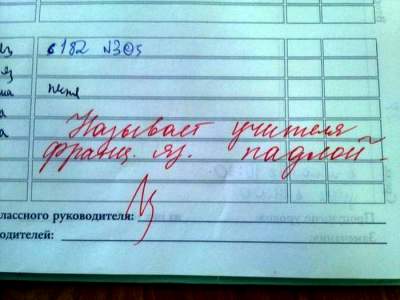 яз с 182 N305
яз
Называет учителя
франц. яз. падлой.
лассного руководителя:
одителей: